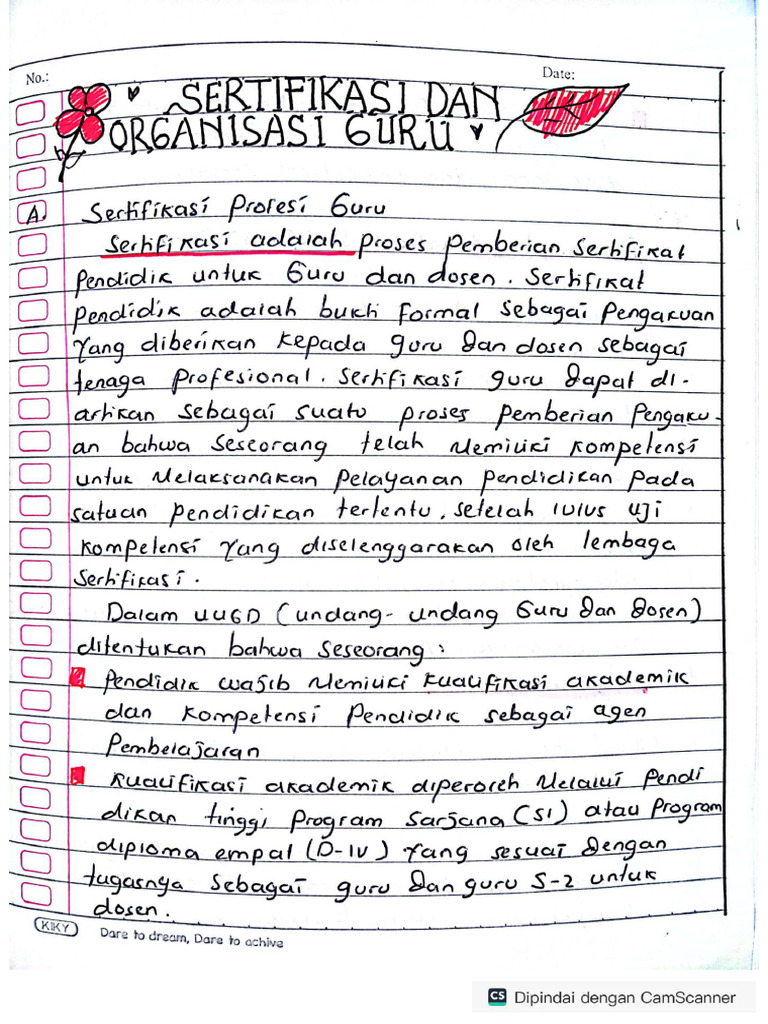 No.:
Date:
SERTIFIKASI DAN
ORGANISASI GURU
A. Sertifikasi Profesi Guru
Sertifikasi adalah proses pemberian sertifikat
Pendidik untuk Guru dan dosen. Sertifikat
pendidik adalah bukti formal sebagai Pengakuan
Yang diberikan kepada guru dan dosen sebagai
tenaga profesional. Sertifikasi guru dapat di-
artikan sebagai suatu proses pemberian Pengaku-
an bahwa seseorang telah Memiliki kompetensi
untuk Melaksanakan pelayanan pendidikan pada
satuan pendidikan tertentu, setelah lulus uji
kompetensi Yang diselenggarakan oleh lembaga
Sertifikasi.
Dalam UUGD (undang-undang Guru dan dosen)
ditentukan bahwa seseorang :
Pendidik wajib Memiliki kualifikasi akademik
dan kompetensi Pendidik sebagai agen
Pembelajaran
kualifikasi akademik diperoleh Melalui Pendi
dikan tinggi program sarjana (S1) atau Program
diploma empat (D-IV) Yang sesuai dengan
tugasnya sebagai guru dan guru S-2 untuk
dosen.
KIKY
Dare to dream, Dare to achive
CS Dipindai dengan CamScanner